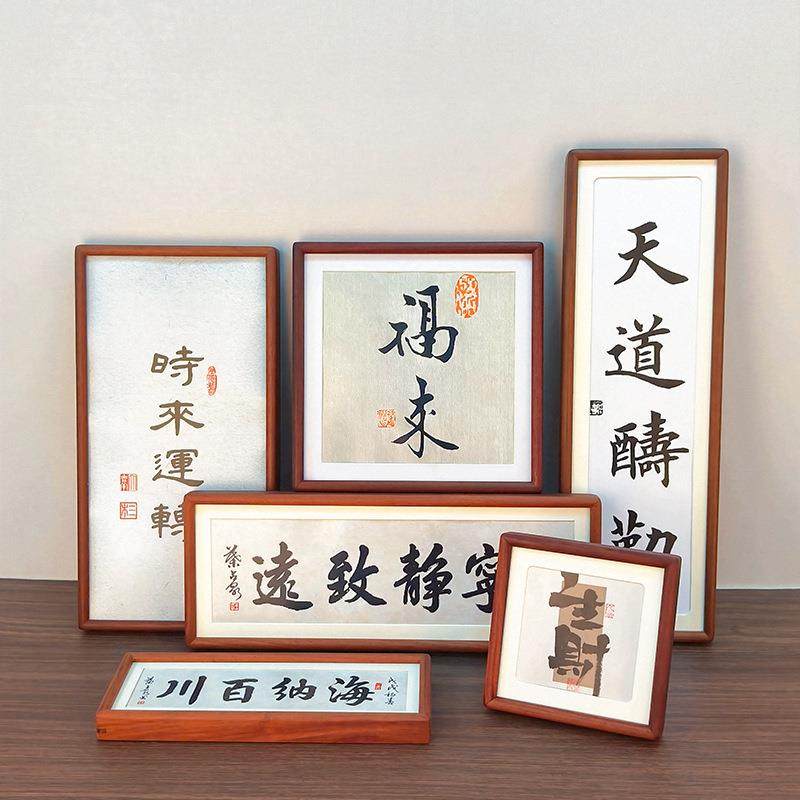 時來運轉
福来
天道酬勤
寧静致遠
海納百川
生財